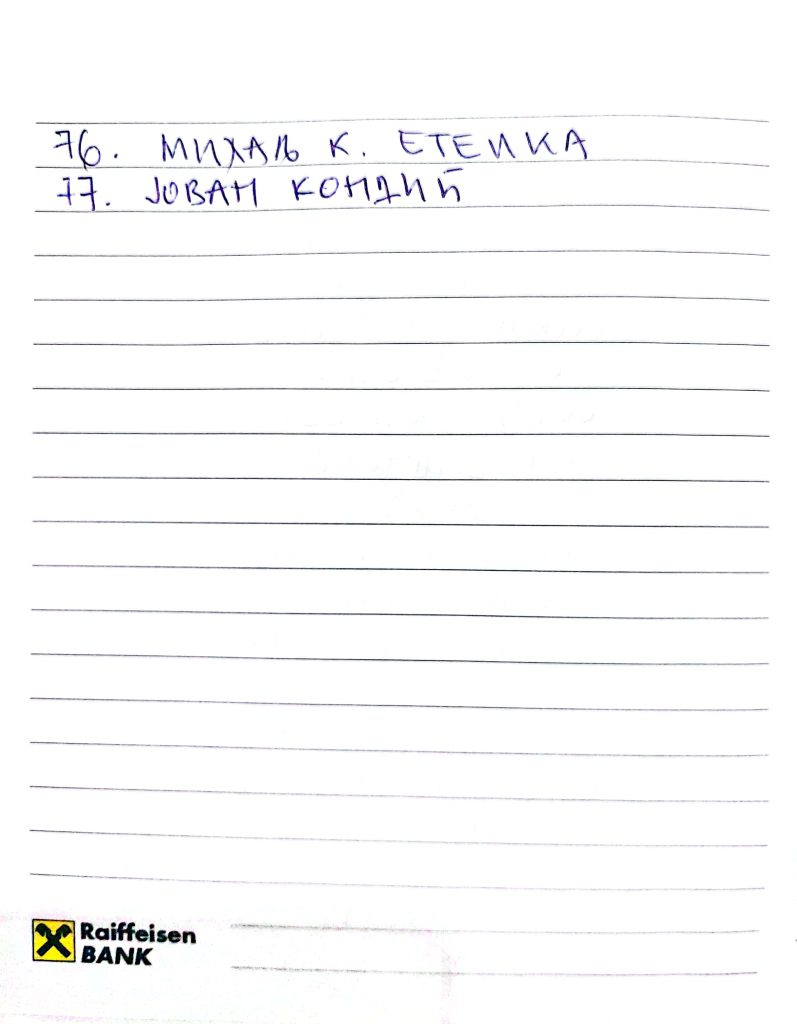 76. МИХАЉ К. ЕТЕИКА
77. ЈОВАН КОНДИЋ
Raiffeisen
BANK